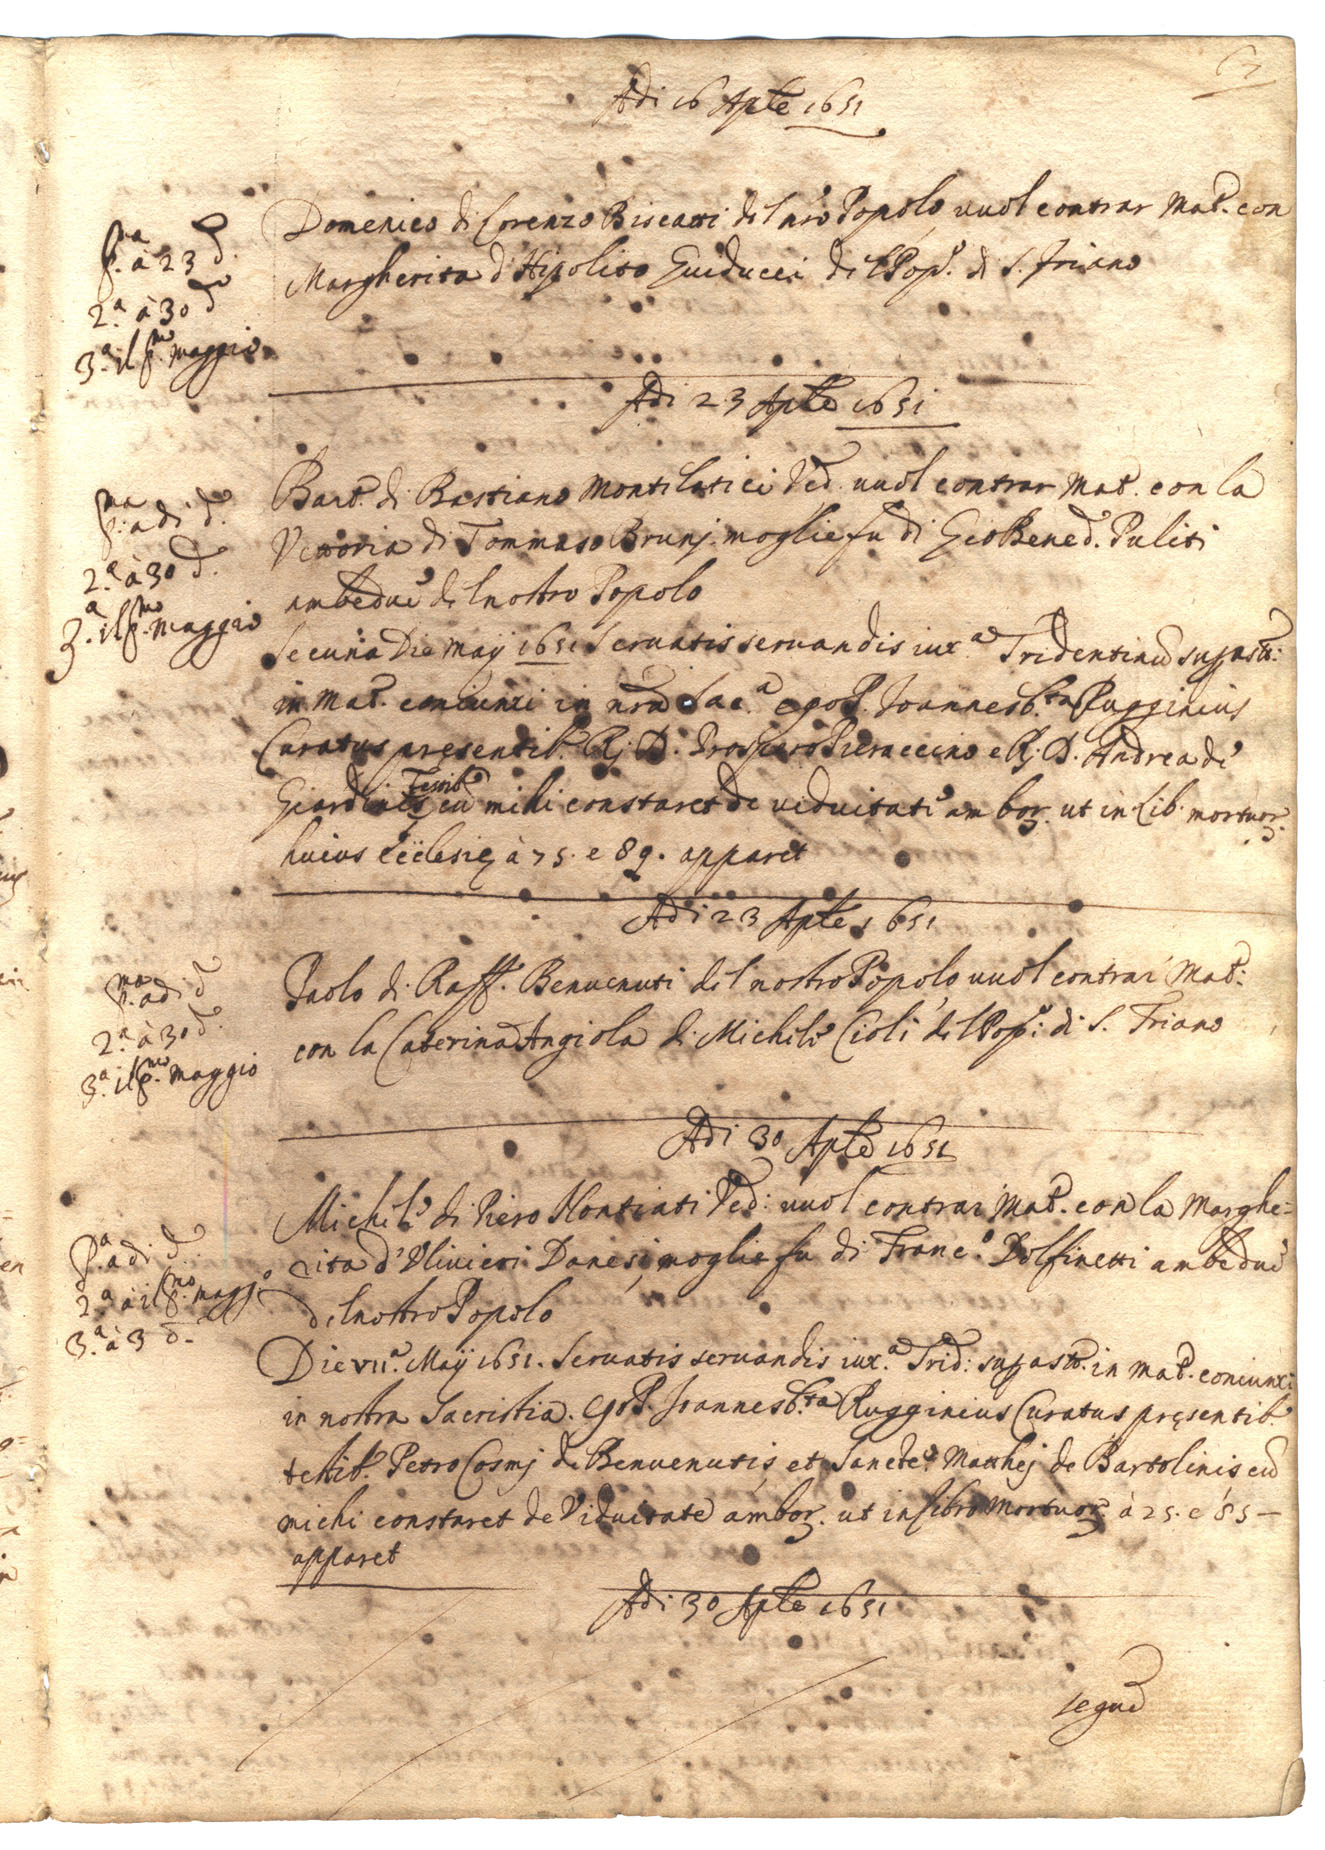 Adi 16 Aple 1651
Domenico di Lorenzo Biscatti del nro Popolo vuol contrar Mat. con
Margherita d'Hipolito Guiducci del Pop.o di S. Friano
p.ma à 23 d.
2.a à 30 d.
3.a il p.mo maggio
Adi 23 Aple 1651
Bart.o di Bastiano Montelatici Ved. vuol contrar Mat. con la
Vettoria di Tommaso Brunj moglie fu di Gio Bened. Puliti
ambedue del nostro Popolo
p.ma adi d.
2.a à 30 d.
3.a il p.mo maggio
Secunda Die Maij 1651 Servatis servandis iux.a Tridentinu supast:
in Mat. coniunxi in nra Sac.a ego P. Joannes b.ta Rugginius
Curatus presentib. R. D. Prospero Pieraccino e R. D. Andrea de
Giardinis Testib. cu mihi constaret de viduitate ambor. ut in Lib. mortuor.
huius Ecclesie à 75. e 89. apparet
Adi 23 Aple 1651
Paolo di Raff. Benvenuti del nostro Popolo vuol contrar Mat.
con la Caterina Angiola di Michele Cioli del Pop.o di S. Friano
p.ma adi d.
2.a à 30 d.
3.a il p.mo Maggio
Adi 30 Aple 1651
Michele di Piero Montiati Ved: vuol contrar Mat. con la Marghe=
rita d'Ulivieri Danesi moglie fu di Franc.o Dolfinetti ambedue
del nostro Popolo
p.a adi d.
2.a à il p.mo magg.o
3.a à 3 d.
Die VII.a Maij 1651. Servatis servandis iux.a Trid: supast. in Mat. coniunxi
in nostra Sacristia. ego P. Joannes b.ta Rugginius Curatus presentib.
testib. Petro Cosmj de Benvenutis, et Sancte Matthej de Bartolinis cu
michi constaret de Viduitate ambor. ut in libro Mortuor. à 25. e 85 —
apparet
Adi 30 Aple 1651
segue